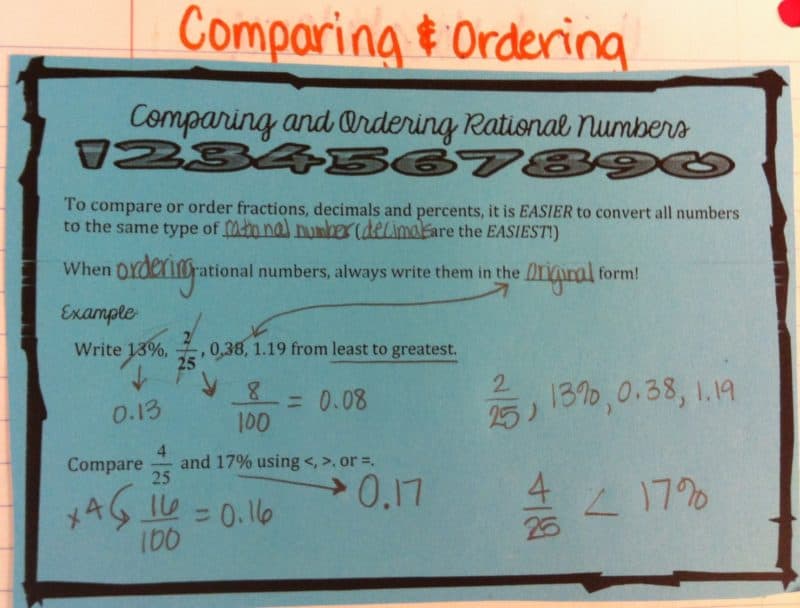 Comparing & Ordering
Comparing and Ordering Rational Numbers
1234567890
To compare or order fractions, decimals and percents, it is EASIER to convert all numbers
to the same type of rational number (decimals are the EASIEST!)
When ordering rational numbers, always write them in the original form!
Example
Write 13%, 2/25, 0.38, 1.19 from least to greatest.
0.13
8/100 = 0.08
2/25, 13%, 0.38, 1.19
Compare 4/25 and 17% using <, >, or =.
x4 16/100 = 0.16
0.17
4/25 < 17%